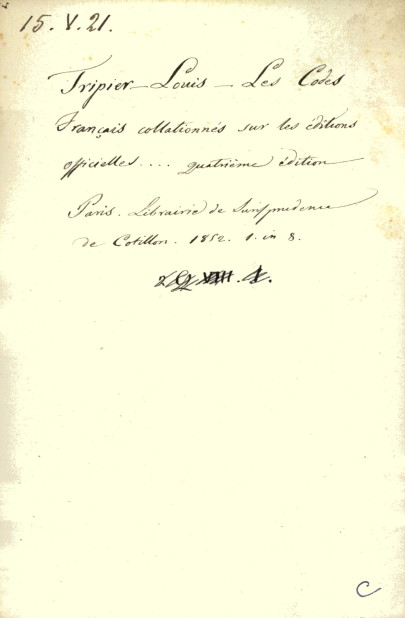 15. V. 21.
Tripier - Louis - Les Codes
Français collationnés sur les éditions
officielles.... quatrième édition
Paris. Librairie de Jurisprudence
de Cotillon. 1852. 1. in 8.
C